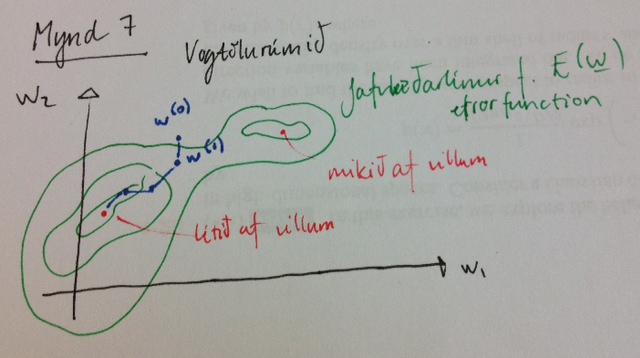 Mynd 7
Vogtölurúmið
Jafnhæðarlínur f. E(w)
error function
w₂
w⁽⁰⁾
w⁽¹⁾
mikið af villum
lítið af villum
w₁